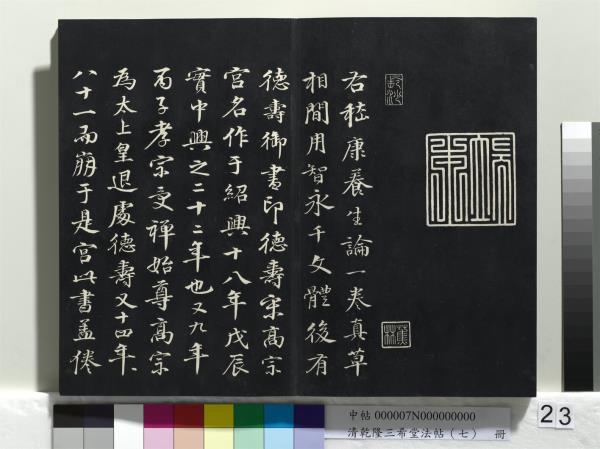 右嵇康養生論一卷真草
相間用智永千文體後有
德壽御書印德壽宋高宗
宮名作于紹興十八年戊辰
實中興之二十二年也又九年
丙子孝宗受禪始尊高宗
為太上皇退處德壽又十四年
八十一而崩于是宮此書蓋倦
中帖 000007N000000000
清乾隆三希堂法帖(七) 冊
23